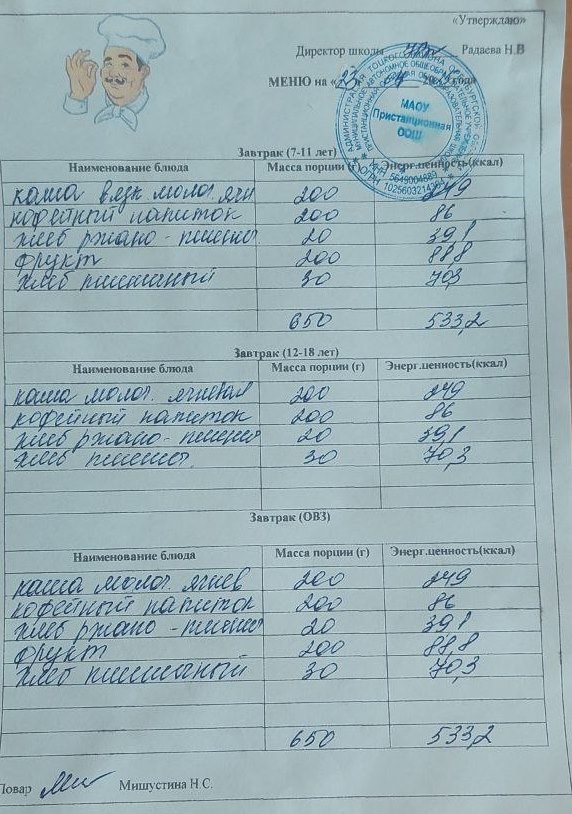 «Утверждаю»
Директор школы Радаева Н.В
МЕНЮ на «23» 04 года
АДМИНИСТРАЦИЯ ТОЦКОГО РАЙОНА ОРЕНБУРГСКОЙ
МУНИЦИПАЛЬНОЕ АВТОНОМНОЕ ОБЩЕОБРАЗОВАТЕЛЬНОЕ
ИНН 5649004889
ОГРН 1025603214
МАОУ
Пристанционная
ООШ
Завтрак (7-11 лет)
Наименование блюда Масса порции (г) Энерг.ценность(ккал)
каша вязк. молоч. ячн 200 249
кофейный напиток 200 86
хлеб ржано - пшенич 20 39,1
фрукт 200 88,8
хлеб пшеничный 30 70,3
650 533,2
Завтрак (12-18 лет)
Наименование блюда Масса порции (г) Энерг.ценность(ккал)
каша молоч. ячневая 200 249
кофейный напиток 200 86
хлеб ржано - пшенич 20 39,1
хлеб пшенич. 30 70,3
Завтрак (ОВЗ)
Наименование блюда Масса порции (г) Энерг.ценность(ккал)
каша молоч. ячнев 200 249
кофейный напиток 200 86
хлеб ржано - пшенич 20 39,1
фрукт 200 88,8
хлеб пшеничный 30 70,3
650 533,2
Повар Мишустина Н.С.